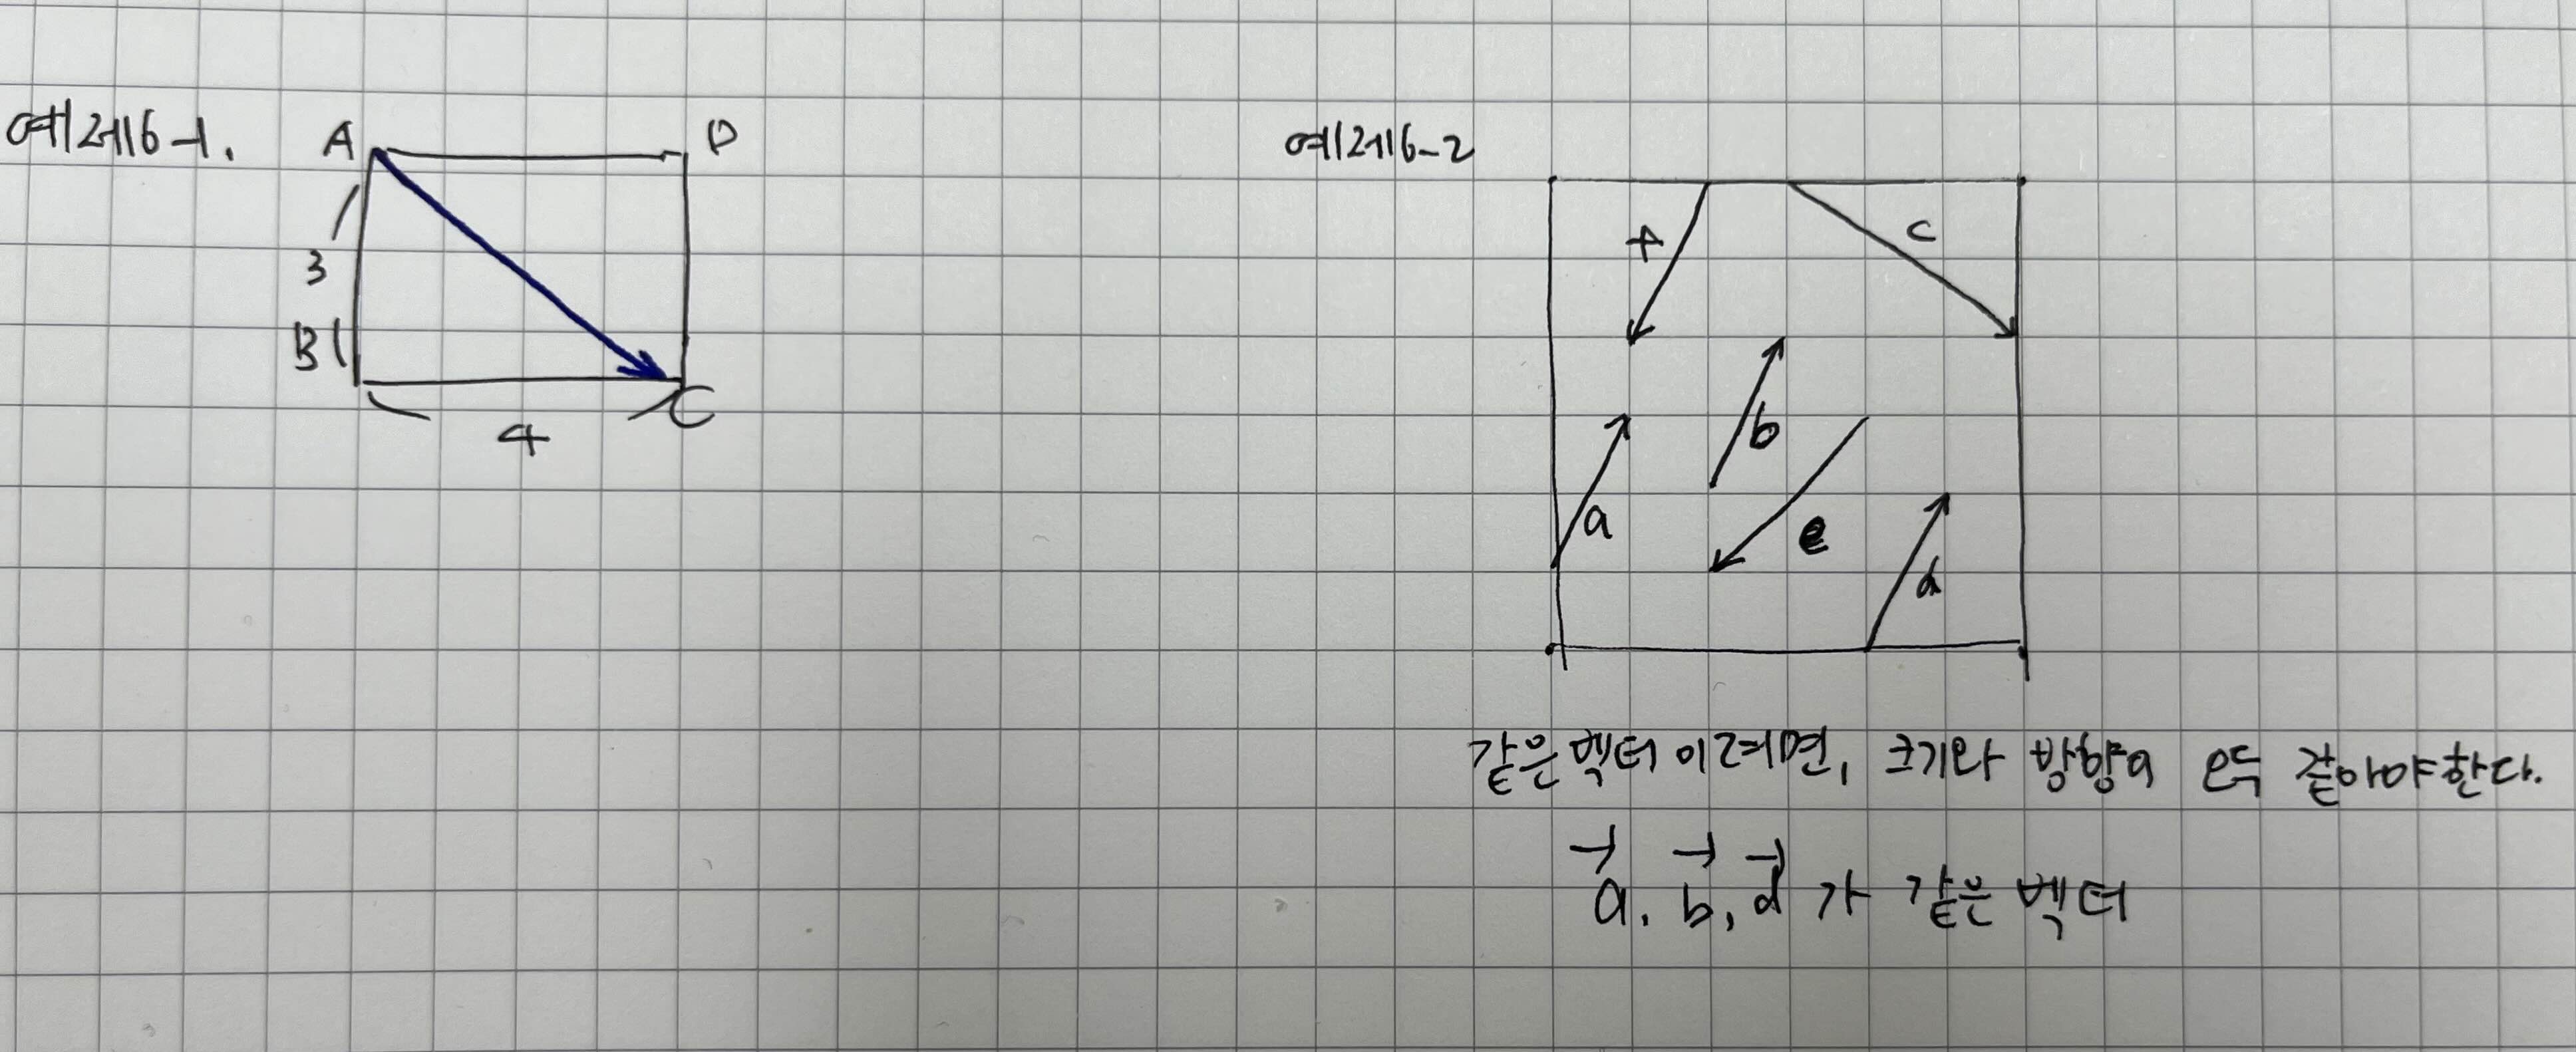 예제16-1.
A
D
3
B
C
4
예제16-2
f
c
b
a
e
d
같은벡터 이려면, 크기와 방향이 모두 같아야한다.
a, b, d 가 같은 벡터